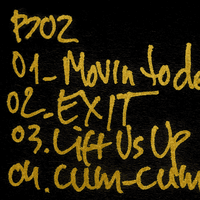 B202
01_Movin to de
02_EXIT
03.Lift Us Up
04.cum-cum